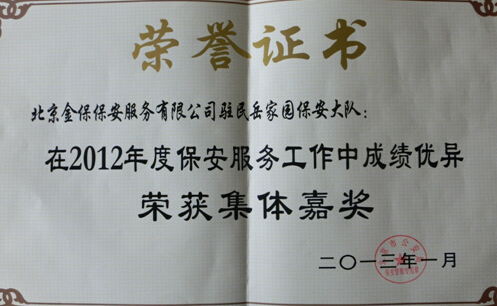 荣誉证书
北京金保保安服务有限公司驻民岳家园保安大队：
在2012年度保安服务工作中成绩优异
荣获集体嘉奖
二〇一三年一月